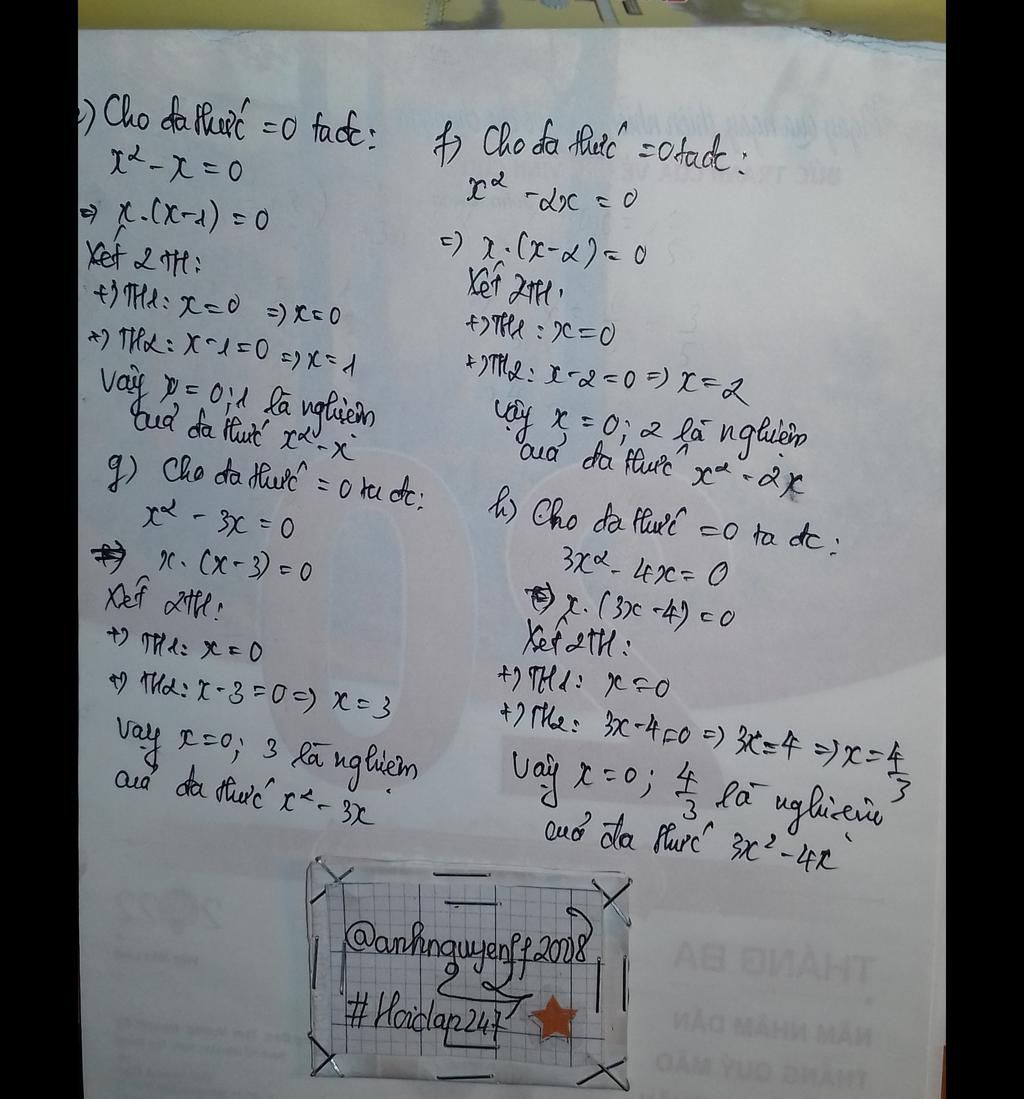 e) Cho đa thức = 0 ta đc:
x² - x = 0
=> x.(x-1) = 0
Xét 2TH:
+) TH1: x = 0 => x = 0
+) TH2: x-1=0 => x = 1
Vậy x = 0;1 là nghiệm
của đa thức x² - x
f) Cho đa thức = 0 ta đc:
x² - 2x = 0
=) x.(x-2) = 0
Xét 2TH:
+) TH1: x = 0
+) TH2: x-2=0 => x = 2
Vậy x = 0; 2 là nghiệm
của đa thức x² - 2x
g) Cho đa thức = 0 ta đc:
x² - 3x = 0
x.(x-3) = 0
Xét 2TH:
+) TH1: x = 0
+) TH2: x-3=0 => x = 3
Vậy x=0; 3 là nghiệm
của đa thức x² - 3x
h) Cho đa thức = 0 ta đc:
3x² - 4x = 0
x.(3x-4) = 0
Xét 2TH:
+) TH1: x = 0
+) TH2: 3x-4=0 => 3x=4 => x = 4/3
Vậy x = 0; 4/3 là nghiệm
của đa thức 3x² - 4x
@anhnguyenff2008
#Hoidap247
THÁNG BA
NĂM NHÂM DẦN
THÁNG QUÝ MÃO